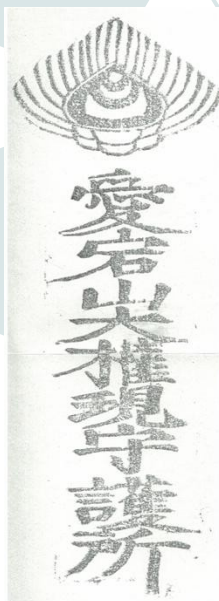 愛宕山大権現守護所